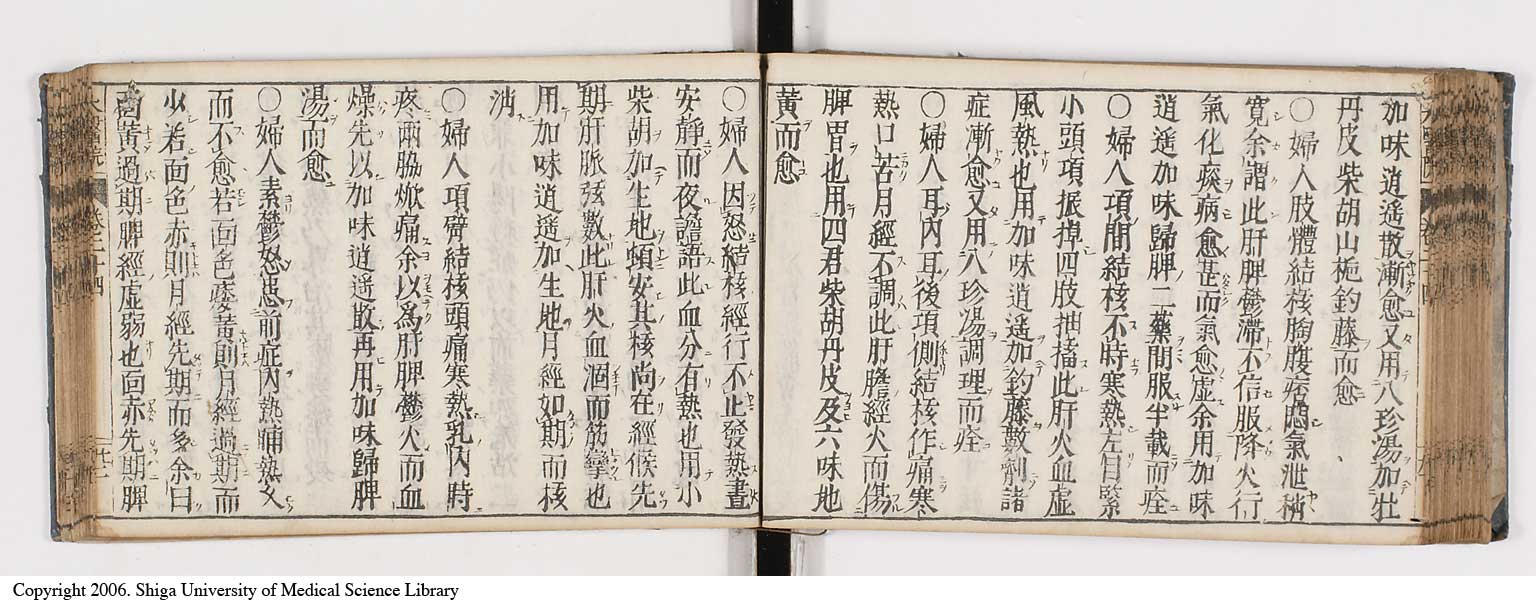 加味逍遥散漸愈又用八珍湯加牡
丹皮柴胡山梔釣藤而愈
○婦人肢體結核胸腹痞悶氣泄稍
寛余謂此肝脾鬱滯不信服降火行
氣化痰病愈甚而氣愈虚余用加味
逍遥加味歸脾二藥間服半載而痊
○婦人項間結核不時寒熱左目緊
小頭項振掉四肢抽搐此肝火血虚
風熱也用加味逍遥加釣藤數劑諸
症漸愈又用八珍湯調理而痊
○婦人耳内耳後項側結核作痛寒
熱口苦月經不調此肝膽經火而傷
脾胃也用四君柴胡丹皮及六味地
黄而愈
○婦人因怒結核經行不止發熱晝
安靜而夜譫語此血分有熱也用小
柴胡加生地頓安其核尚在經候先
期肝脈弦數此肝火血涸而筋攣也
用加味逍遥加生地月經如期而核
消
○婦人項臂結核頭痛寒熱乳内時
疼兩脇焮痛余以爲肝脾鬱火而血
燥先以加味逍遥散再用加味歸脾
湯而愈
○婦人素鬱怒患前症内熱晡熱久
而不愈若面色痿黄則月經過期而
少若面色赤則月經先期而多余曰
面黄過期脾經虚弱也面赤先期脾
Copyright 2006. Shiga University of Medical Science Library